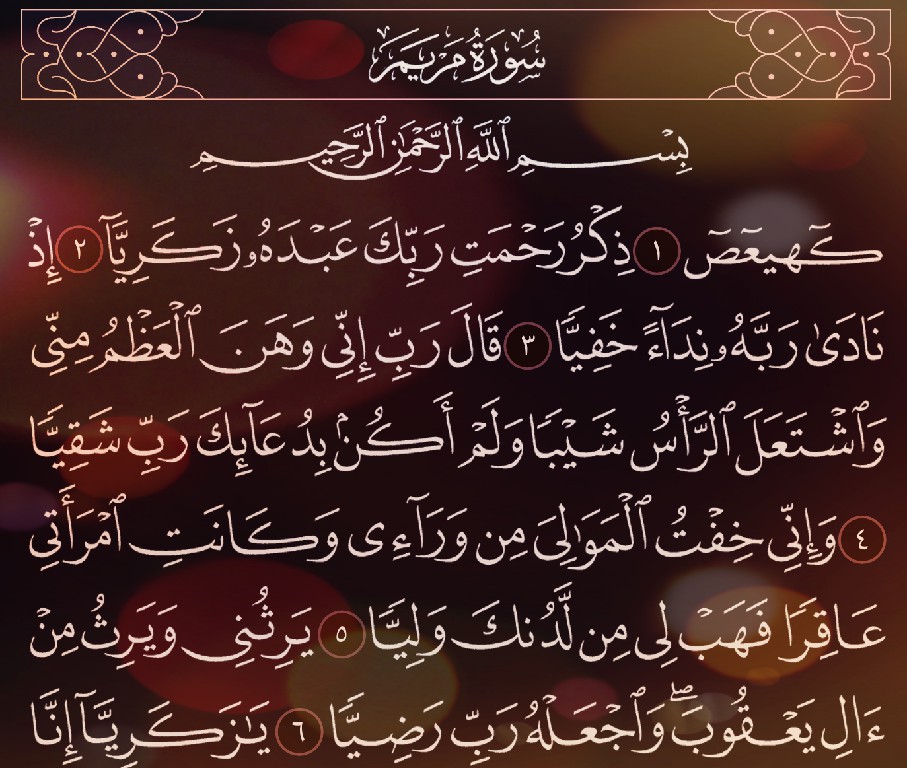 سُورَةُ مَرْيَمَ
بِسْمِ ٱللَّهِ ٱلرَّحْمَٰنِ ٱلرَّحِيمِ
كٓهيعٓصٓ ١ ذِكْرُ رَحْمَتِ رَبِّكَ عَبْدَهُۥ زَكَرِيَّآ ٢ إِذْ
نَادَىٰ رَبَّهُۥ نِدَآءً خَفِيًّا ٣ قَالَ رَبِّ إِنِّى وَهَنَ ٱلْعَظْمُ مِنِّى
وَٱشْتَعَلَ ٱلرَّأْسُ شَيْبًا وَلَمْ أَكُنۢ بِدُعَآئِكَ رَبِّ شَقِيًّا
٤ وَإِنِّى خِفْتُ ٱلْمَوَٰلِىَ مِن وَرَآءِى وَكَانَتِ ٱمْرَأَتِى
عَاقِرًا فَهَبْ لِى مِن لَّدُنكَ وَلِيًّا ٥ يَرِثُنِى وَيَرِثُ مِنْ
ءَالِ يَعْقُوبَ ۖ وَٱجْعَلْهُ رَبِّ رَضِيًّا ٦ يَٰزَكَرِيَّآ إِنَّا